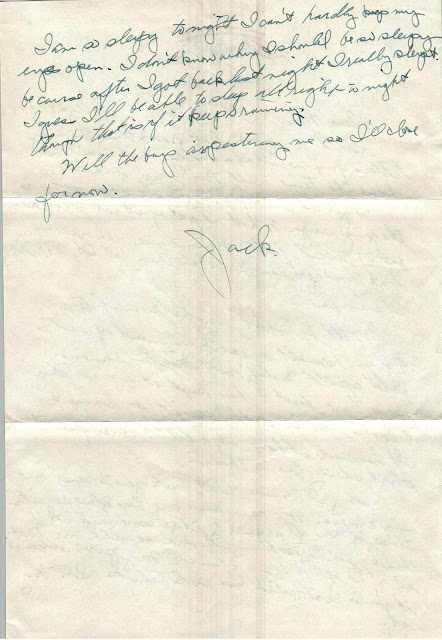 I am so sleepy tonight I can't hardly keep my
eyes open. I don't know why I should be so sleepy
because after I got back last night I really slept.
I gues I'll be able to sleep all right to night
though that is if it keeps raining.
Well the bugs is pestering me so I'll close
for now.
Jack.